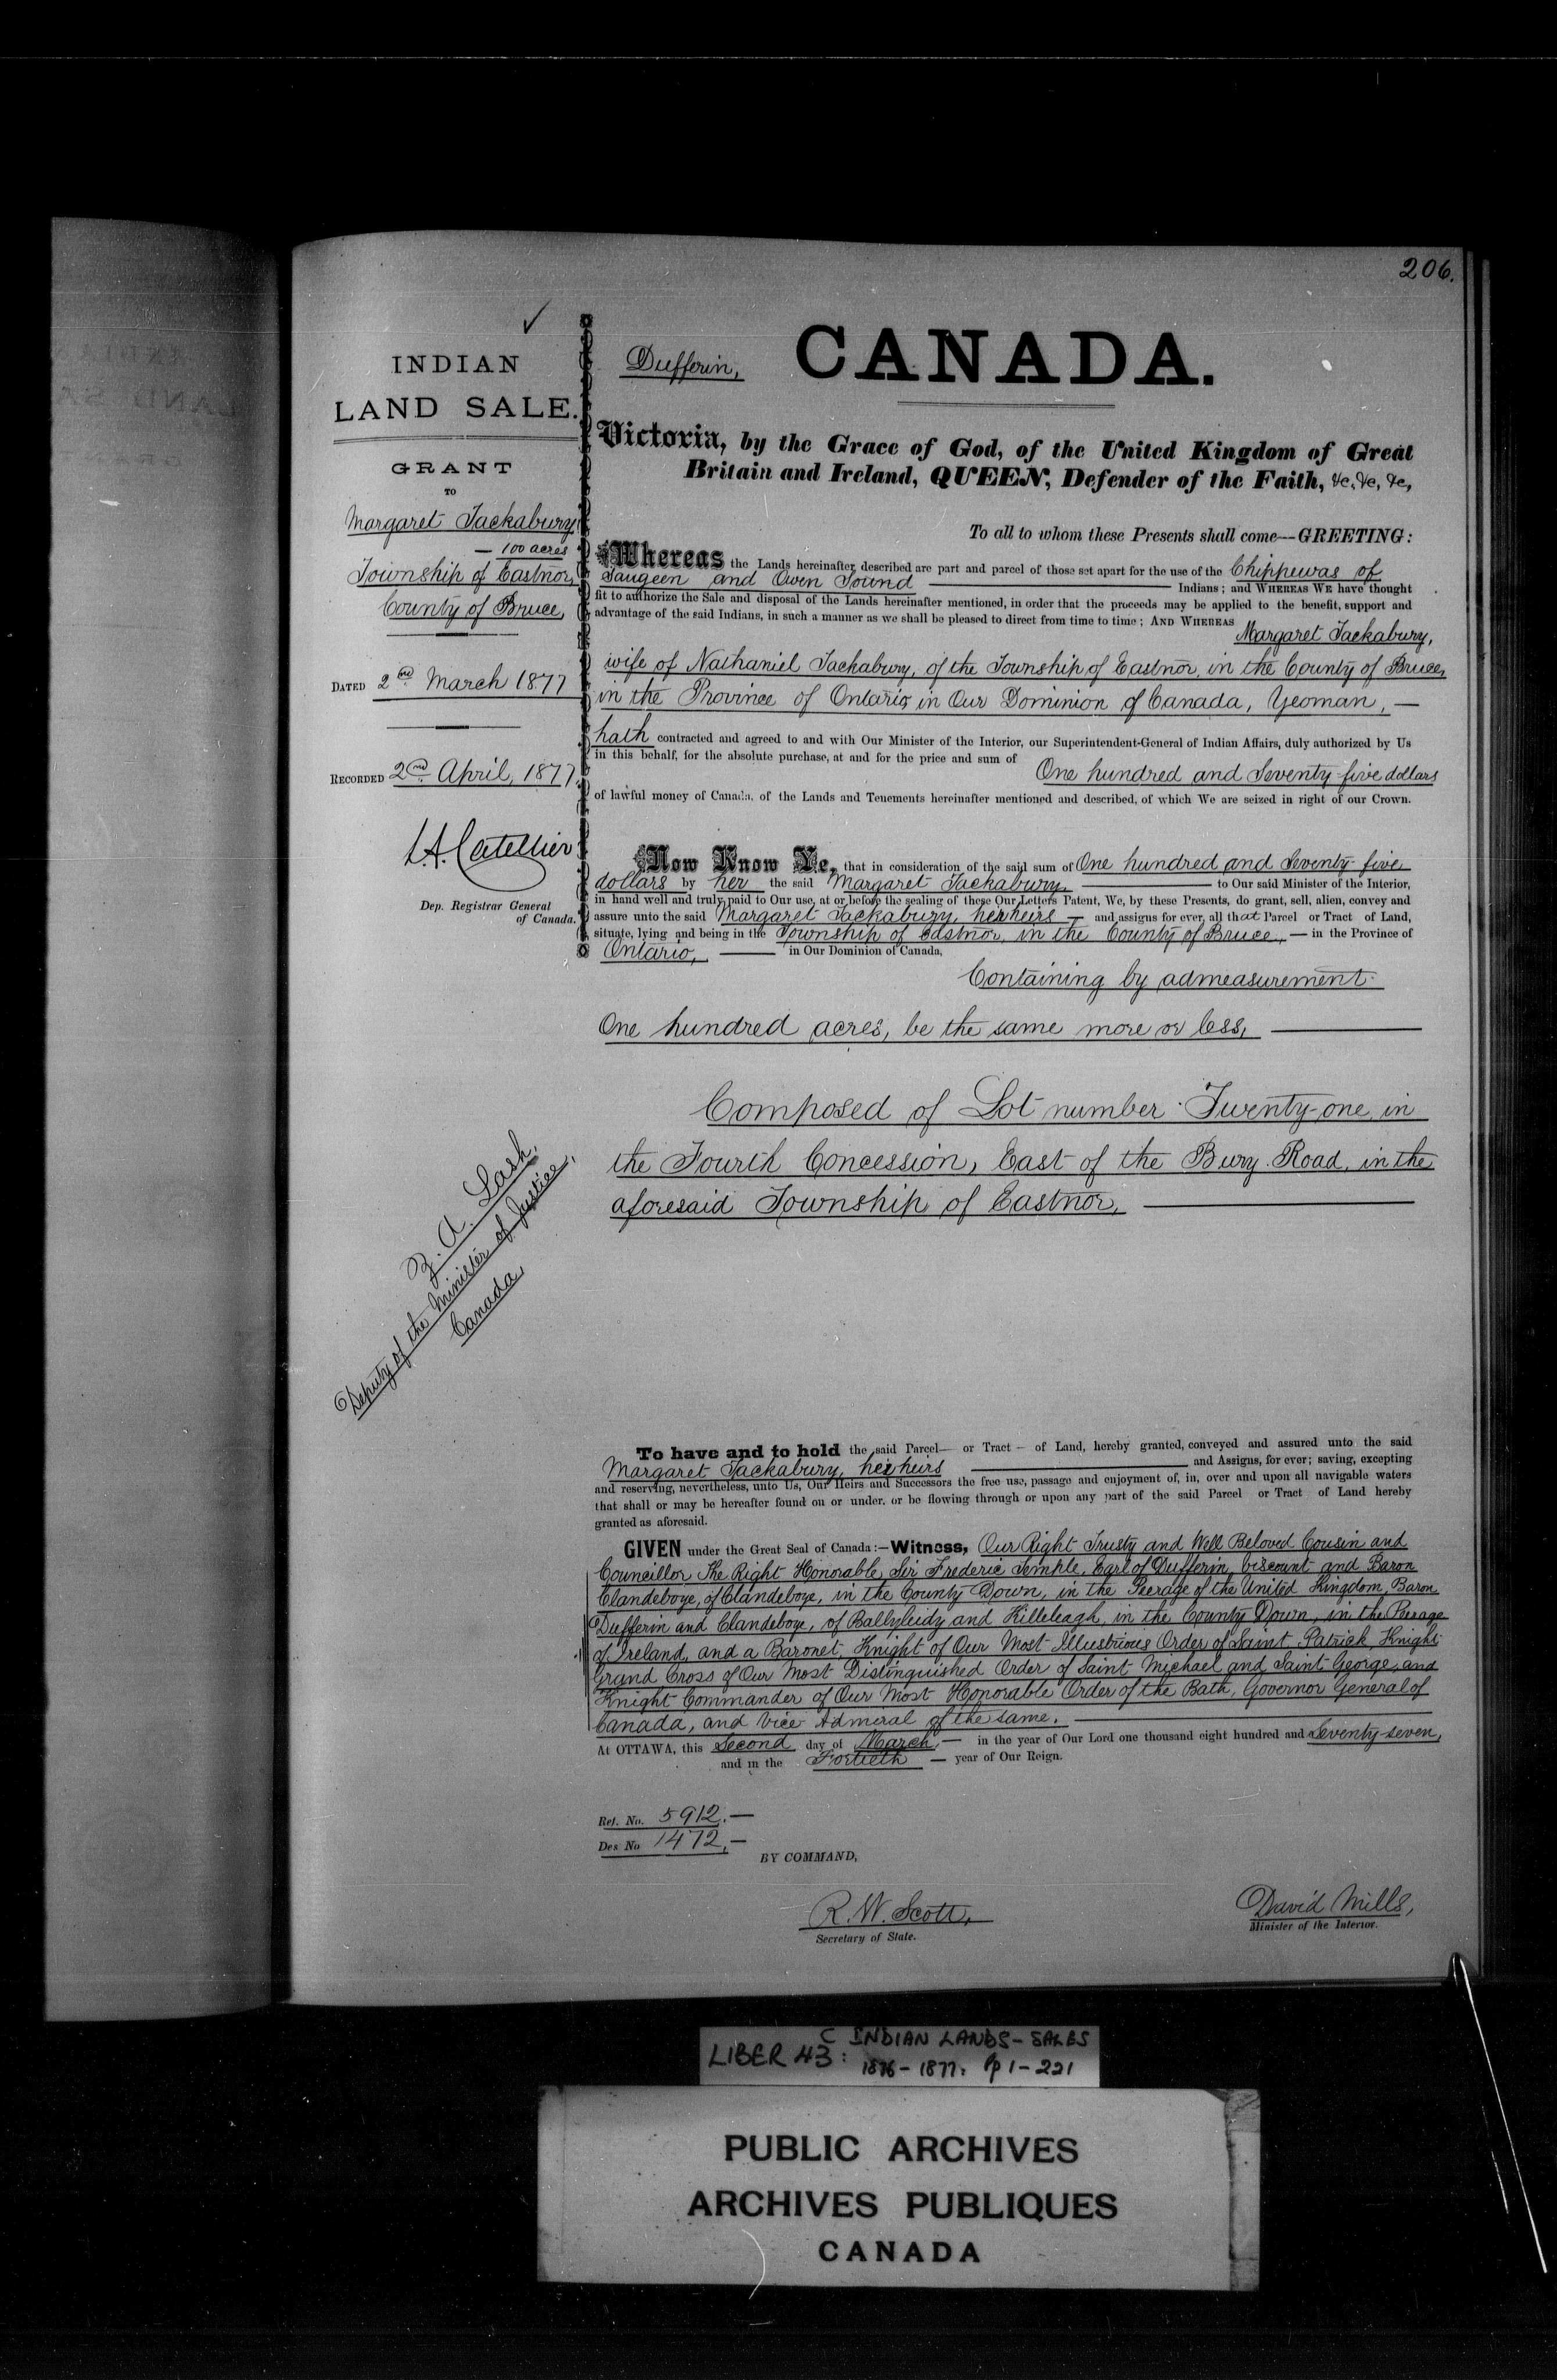 206.
✓
INDIAN
LAND SALE.
GRANT
TO
Margaret Tackabury,
— 100 acres
Township of Eastnor,
County of Bruce,
DATED 2nd March 1877
RECORDED 2nd April, 1877.
L.A. Catellier
Dep. Registrar General
of Canada.
Z. A. Lash,
Deputy of the Minister of Justice,
Canada,
Dufferin,
CANADA.
Victoria, by the Grace of God, of the United Kingdom of Great
Britain and Ireland, QUEEN, Defender of the Faith, &c, &c, &c,
To all to whom these Presents shall come—GREETING:
Whereas the Lands hereinafter described are part and parcel of those set apart for the use of the Chippewas of
Saugeen and Owen Sound — Indians; and WHEREAS WE have thought
fit to authorize the Sale and disposal of the Lands hereinafter mentioned, in order that the proceeds may be applied to the benefit, support and
advantage of the said Indians, in such a manner as we shall be pleased to direct from time to time; AND WHEREAS
Margaret Tackabury,
wife of Nathaniel Tackabury, of the Township of Eastnor, in the County of Bruce,
in the Province of Ontario, in Our Dominion of Canada, Yeoman, —
hath contracted and agreed to and with Our Minister of the Interior, our Superintendent-General of Indian Affairs, duly authorized by Us
in this behalf, for the absolute purchase, at and for the price and sum of
One hundred and Seventy-five dollars
of lawful money of Canada, of the Lands and Tenements hereinafter mentioned and described, of which We are seized in right of our Crown.
Now Know Ye, that in consideration of the said sum of One hundred and Seventy-five
dollars by her the said Margaret Tackabury, — to Our said Minister of the Interior,
in hand well and truly paid to Our use, at or before the sealing of these Our Letters Patent, We, by these Presents, do grant, sell, alien, convey and
assure unto the said Margaret Tackabury, her heirs — and assigns for ever, all that Parcel or Tract of Land,
situate, lying and being in the Township of Eastnor, in the County of Bruce, — in the Province of
Ontario, — in Our Dominion of Canada,
Containing by admeasurement
One hundred acres, be the same more or less, —
Composed of Lot number Twenty-one, in
the Fourth Concession, East of the Bury Road, in the
aforesaid Township of Eastnor, —
To have and to hold the said Parcel — or Tract — of Land, hereby granted, conveyed and assured unto the said
Margaret Tackabury, her heirs — and Assigns, for ever; saving, excepting
and reserving, nevertheless, unto Us, Our Heirs and Successors the free use, passage and enjoyment of, in, over and upon all navigable waters
that shall or may be hereafter found on or under, or be flowing through or upon any part of the said Parcel or Tract of Land hereby
granted as aforesaid.
GIVEN under the Great Seal of Canada:—Witness, Our Right Trusty and Well Beloved Cousin and
Councillor The Right Honorable, Sir Frederic Temple, Earl of Dufferin, Viscount and Baron
Clandeboye, of Clandeboye, in the County Down, in the Peerage of the United Kingdom, Baron
Dufferin and Clandeboye, of Ballyleidy and Killeleagh, in the County Down, in the Peerage
of Ireland, and a Baronet, Knight of Our Most Illustrious Order of Saint Patrick, Knight
Grand Cross of Our Most Distinguished Order of Saint Michael and Saint George, and
Knight Commander of Our Most Honorable Order of the Bath, Governor General of
Canada, and Vice Admiral of the same. —
At OTTAWA, this Second day of March, — in the year of Our Lord one thousand eight hundred and Seventy-seven,
and in the Fortieth — year of Our Reign.
Ref. No. 5912, —
Des No 1472, —
BY COMMAND,
R. W. Scott,
Secretary of State.
David Mills,
Minister of the Interior.
LIBER 43 C: INDIAN LANDS - SALES
1876 - 1877. p 1 - 221
PUBLIC ARCHIVES
ARCHIVES PUBLIQUES
CANADA